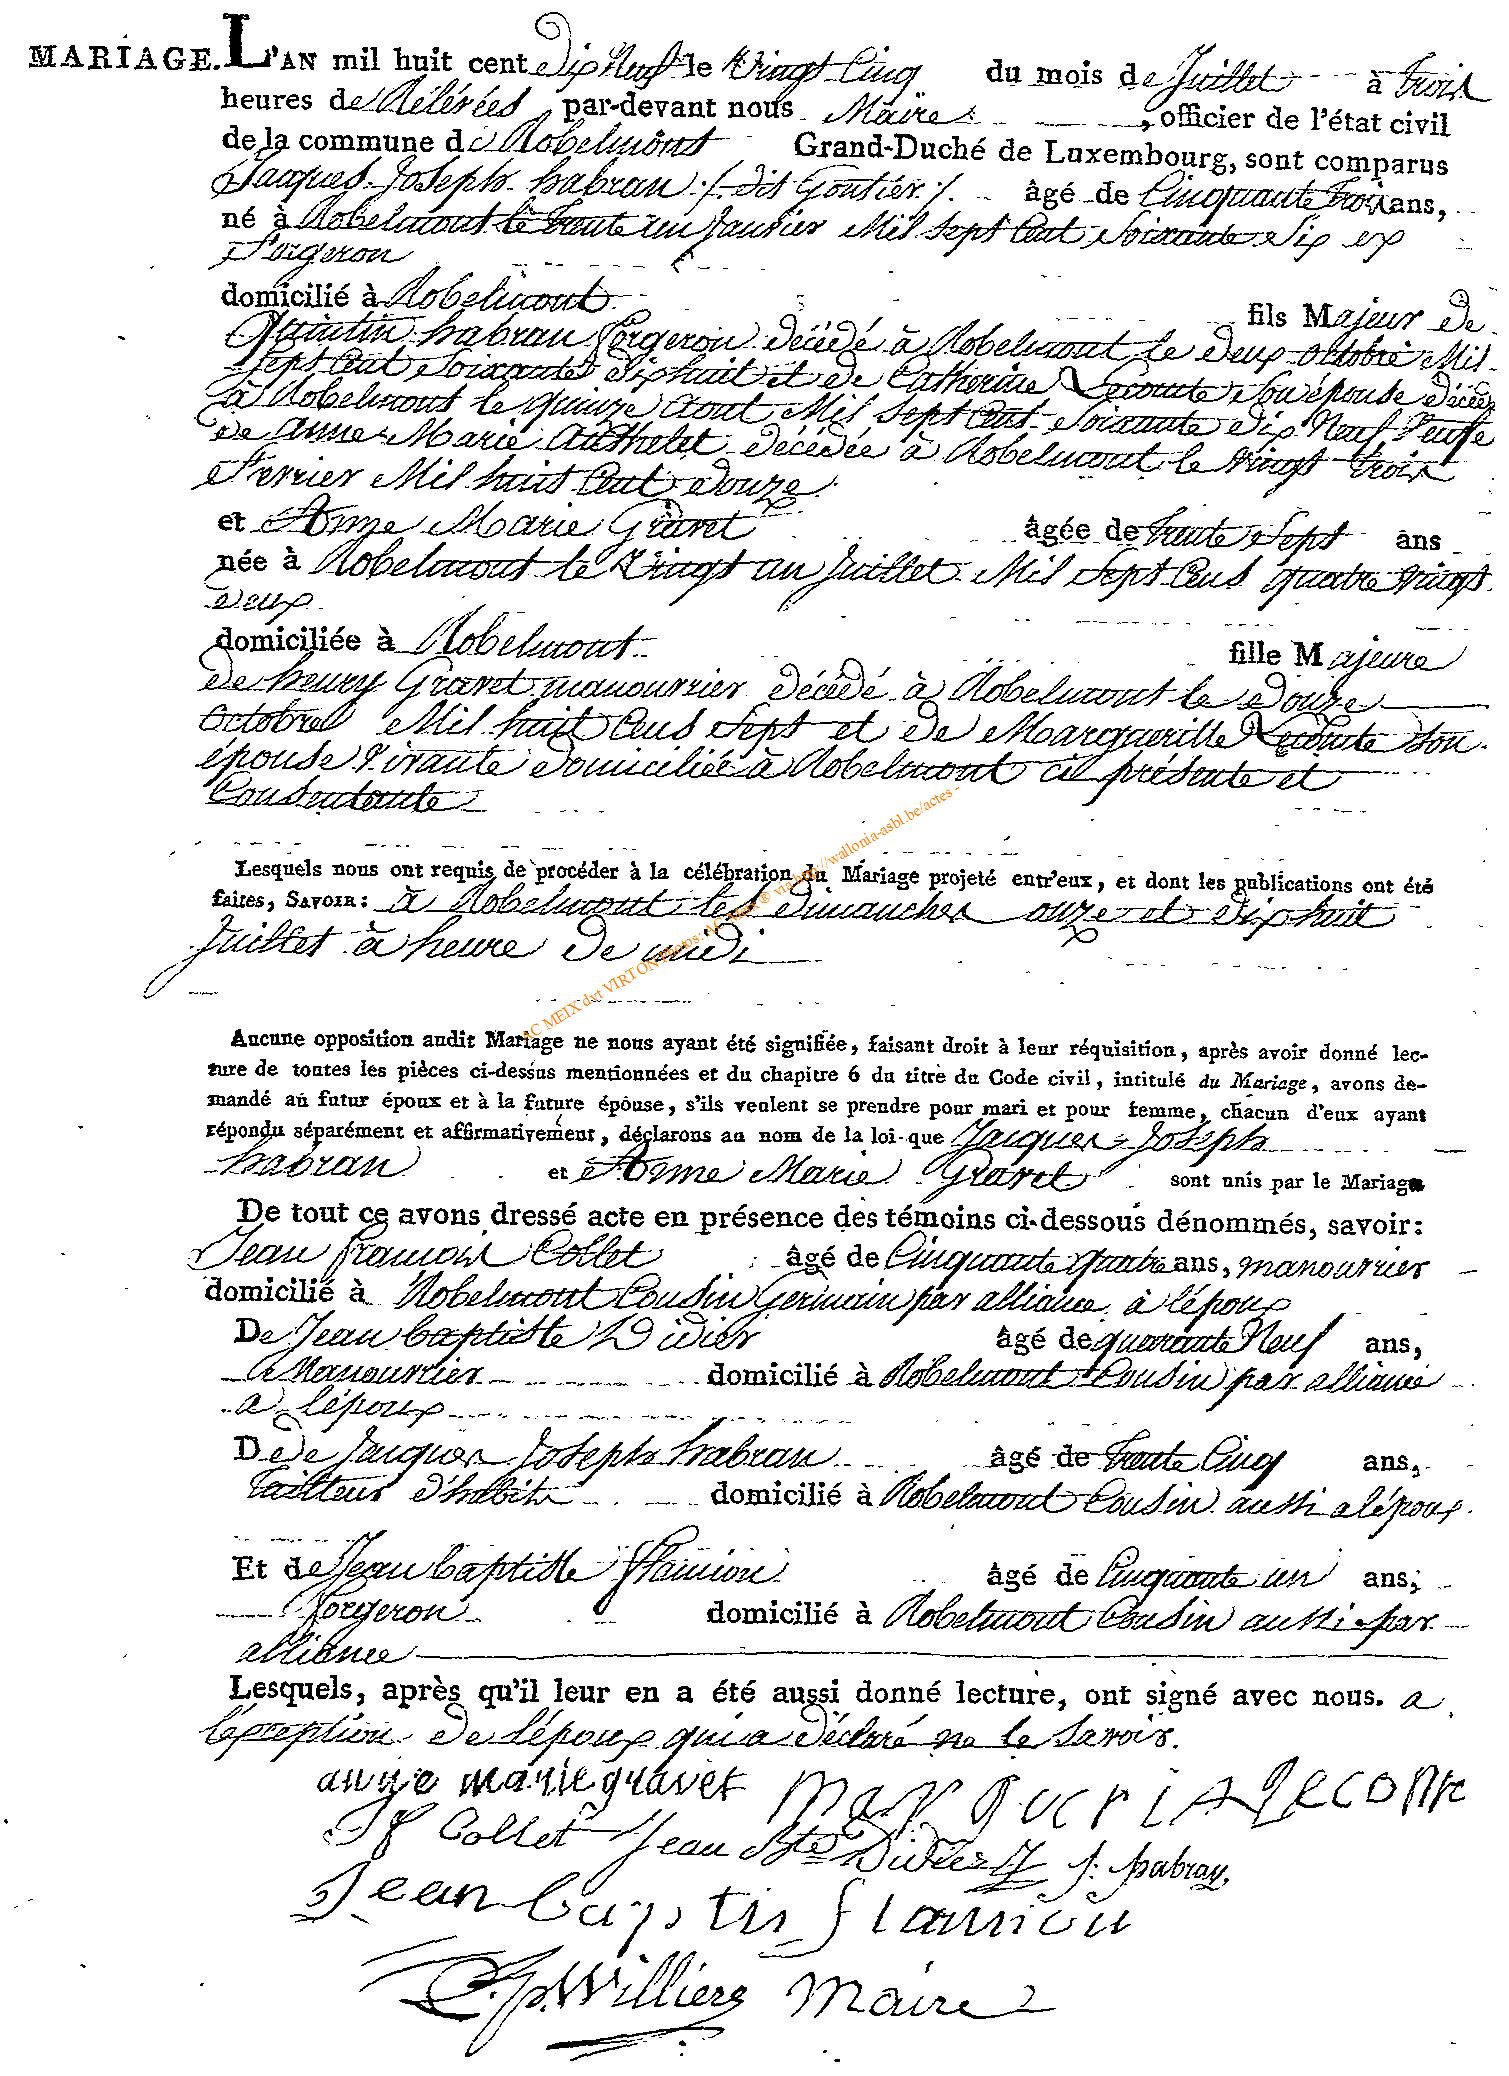 MARIAGE. L'AN mil huit cent Dix Neuf le Vingt Cinq du mois de Juillet à trois
heures de Rélévées par-devant nous Maire , officier de l'état civil
de la commune de Robelmont Grand-Duché de Luxembourg, sont comparus
Jacques Joseph habran :/ dit Gontier :/. âgé de Cinquante trois ans,
né à Robelmont le trente un Janvier Mil sept Cent Soixante Six ex
Forgeron
domicilié à Robelmont fils Majeur de
Quintin habran Forgeron décédé à Robelmont le deux octobre Mil
Sept Cent Soixante dix huit et de Catherine Lecomte Son épouse décédé
à Robelmont le quinze Aout Mil Sept Cent Soixante dix Neuf Veuf
de Anne Marie Authelet décédée à Robelmont le vingt trois
Fevrier Mil huit Cent douze
et Anne Marie Gravet âgée de trente Sept ans
née à Robelmont le Vingt un Juillet Mil Sept Cens quatre vingt
deux
domiciliée à Robelmont fille Majeure
de henry Gravet manouvrier décédé à Robelmont le douze
Octobre Mil huit Cens Sept et de Marguerille Lecomte Son
épouse Vivante domiciliée à Robelmont ci présente et
Consentante
Lesquels nous ont requis de procéder à la célébration du Mariage projeté entr'eux, et dont les publications ont été
faites, SAVOIR : à Robelmont les dimanches onze et dix huit
Juillet à heure de midi
Aucune opposition audit Mariage ne nous ayant été signifiée, faisant droit à leur réquisition, après avoir donné lec-
ture de toutes les pièces ci-dessus mentionnées et du chapitre 6 du titre du Code civil, intitulé du Mariage, avons de-
mandé au futur époux et à la future épouse, s'ils veulent se prendre pour mari et pour femme, chacun d'eux ayant
répondu séparément et affirmativement, déclarons au nom de la loi que Jacques Joseph
habran et Anne Marie Gravet sont unis par le Mariage
De tout ce avons dressé acte en présence des témoins ci-dessous dénommés, savoir:
Jean François Collet âgé de Cinquante quatre ans, manouvrier
domicilié à Robelmont Cousin Germain par alliance à lépoux
De Jean baptiste Didier âgé de quarante Neuf ans,
Manouvrier domicilié à Robelmont Cousin par alliance
a lépoux
De de Jacques Joseph habran âgé de trente Cinq ans,
Tailleur d'habits domicilié à Robelmont Cousin aussi a lépoux
Et de Jean baptiste Flamion âgé de Cinquante un ans,
Forgeron domicilié à Robelmont Cousin aussi par
alliance
Lesquels, après qu'il leur en a été aussi donné lecture, ont signé avec nous. a
léxception de lépoux qui a déclaré ne le Savoir.
anne marie gravet Marguerit Lecomte
Jf Collet Jean Bte Didier J: J: habran
Jean baptis flamion
Williere Maire
AC MEIX dvt VIRTON via http://wallonia-asbl.be/actes -